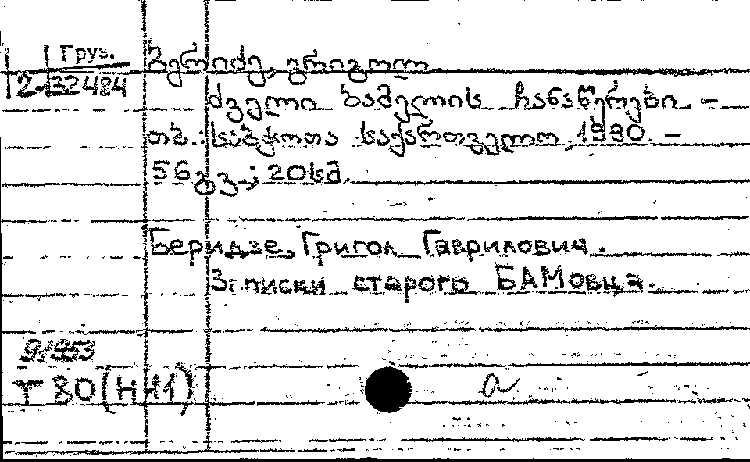 Груз.
2-32484
ბერიძე, გრიგოლ
ძველი ბამელის ჩანაწერები. –
თბ.: საბჭოთა საქართველო, 1990. –
56 გვ.; 20 სმ.
Беридзе, Григол Гаврилович.
Записки старого БАМовца.
91453
Т 80(НИ1)
a